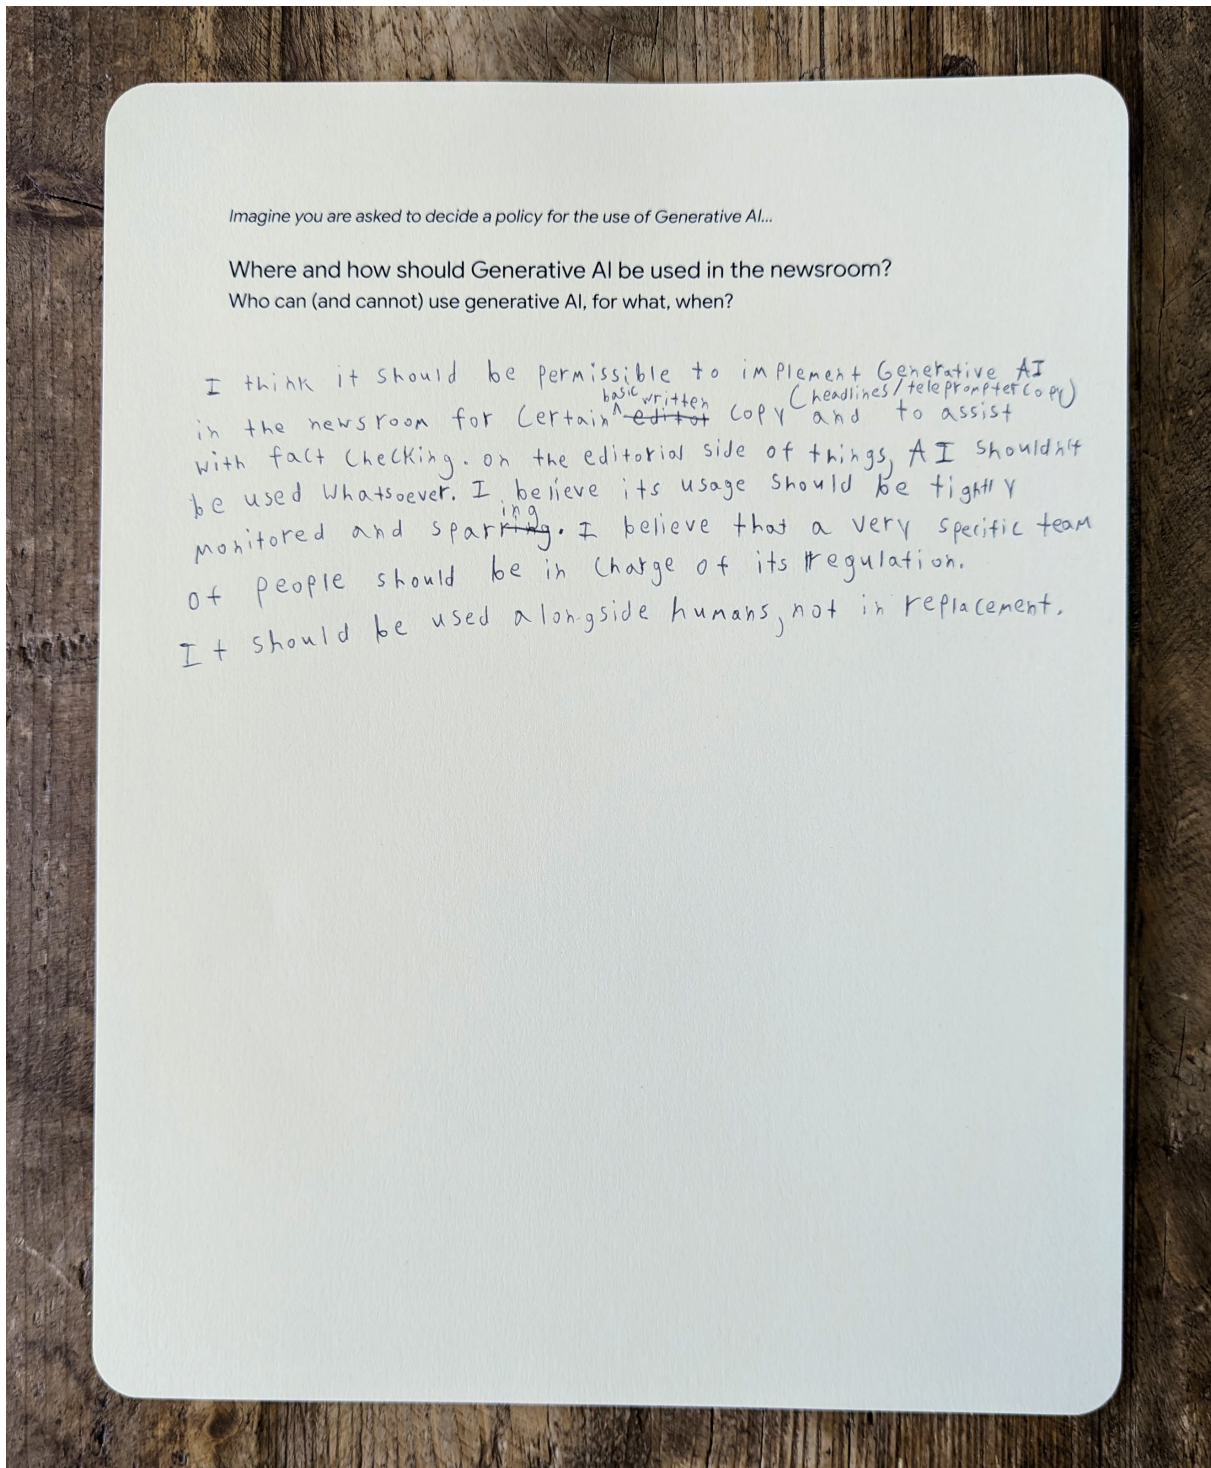 Imagine you are asked to decide a policy for the use of Generative AI...
Where and how should Generative AI be used in the newsroom?
Who can (and cannot) use generative AI, for what, when?
I think it should be permissible to implement Generative AI
basic written (headlines/teleprompter copy)
in the newsroom for certain ^ editor copy and to assist
with fact checking. on the editorial side of things, AI shouldn't
be used whatsoever. I believe its usage should be tightly
ing
monitored and sparring. I believe that a very specific team
of people should be in charge of its regulation.
It should be used alongside humans, not in replacement.